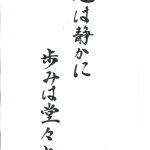 は静かに
歩みは堂々と